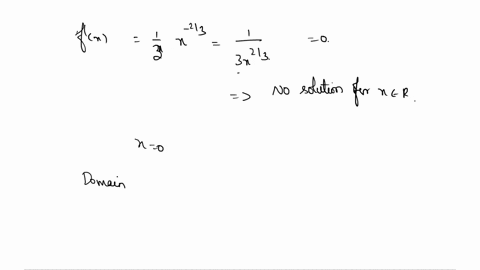 f'(x) = 1/3 x^{-2/3} = 1/(3x^{2/3}) = 0.
=> No solution for x ∈ R.
x = 0
Domain